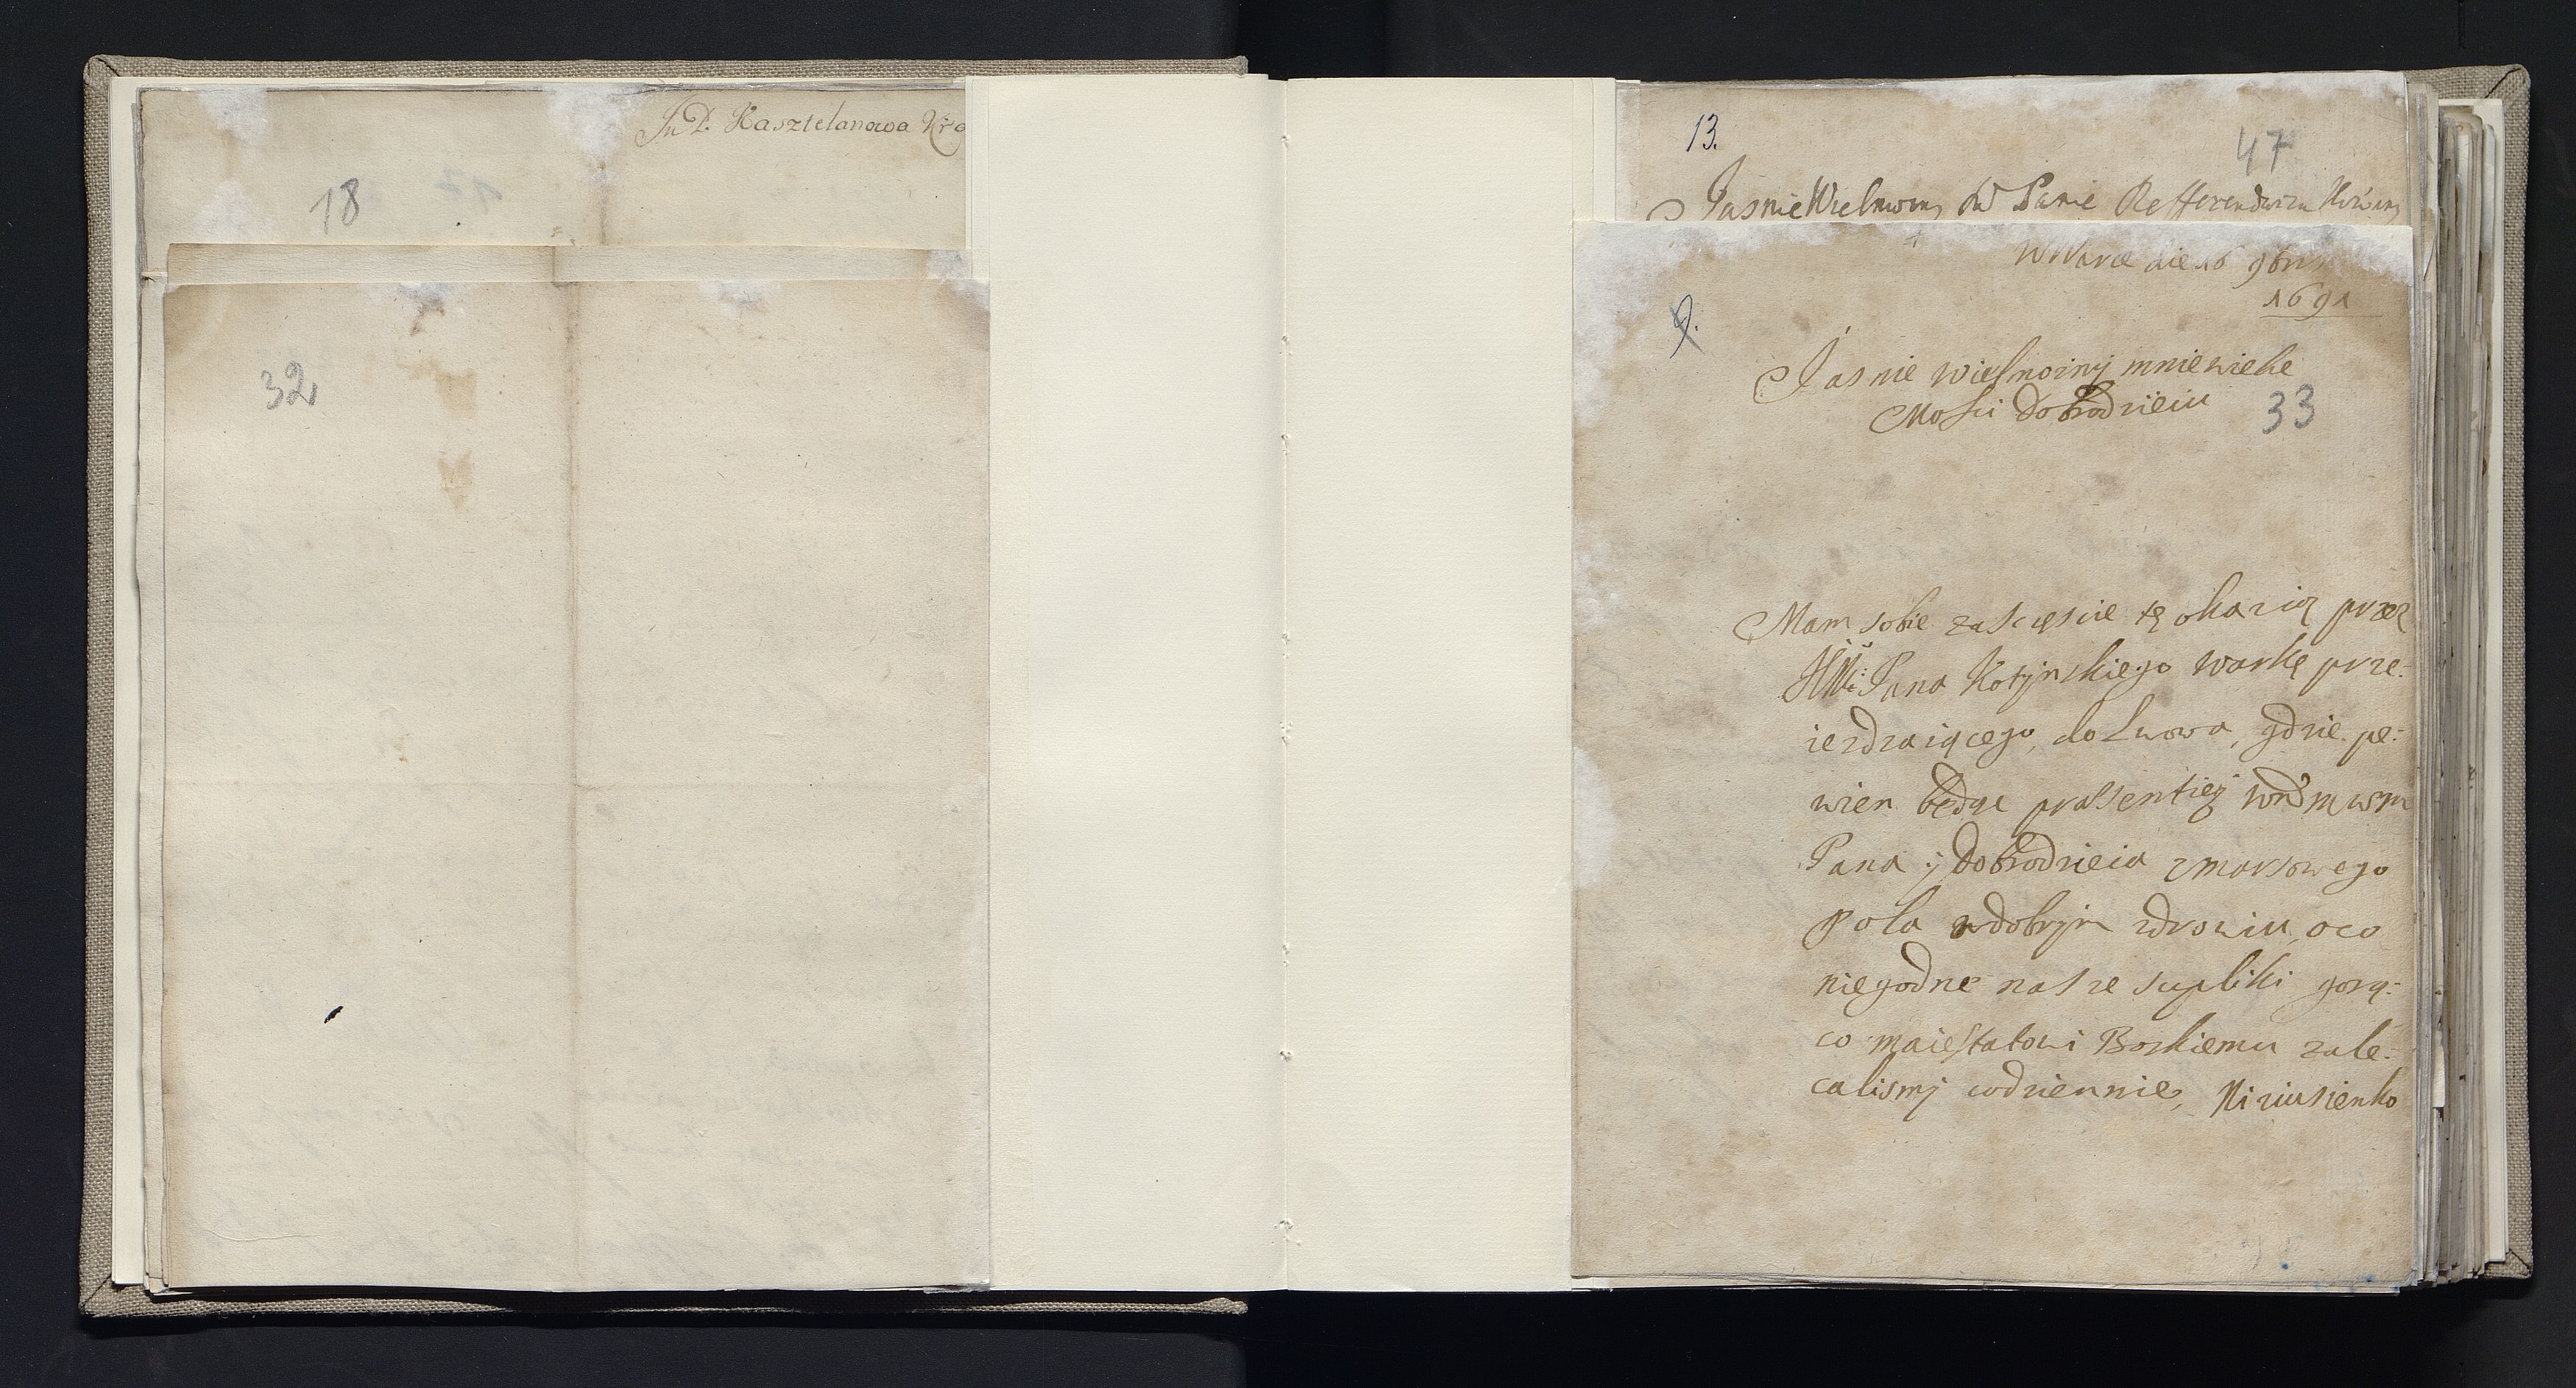 JnP. Kasztelanowa Kra
18
32
13.
47
Jasnie Wielmozny Mł Panie Refferendarzu Koronny
WWarce die 16 9bris
1691
9.
Jasnie wielmozny mnie wielce
Mosci Dobrodzieiu
33
Mam sobie zasczęscie tę okazią przez
Pana Kotynskiego Warkę prze:
iezdzaiącego, do Lwowa, gdzie pe:
wien będąc prassentiey WMM
Pana y Dobrodzieia zmarsowego
Pola wdobrym zdrowiu, oco
niegodne nasze supliki gorą:
co maiestatowi Boskiemu zale:
calismy codziennie, Niziusienko